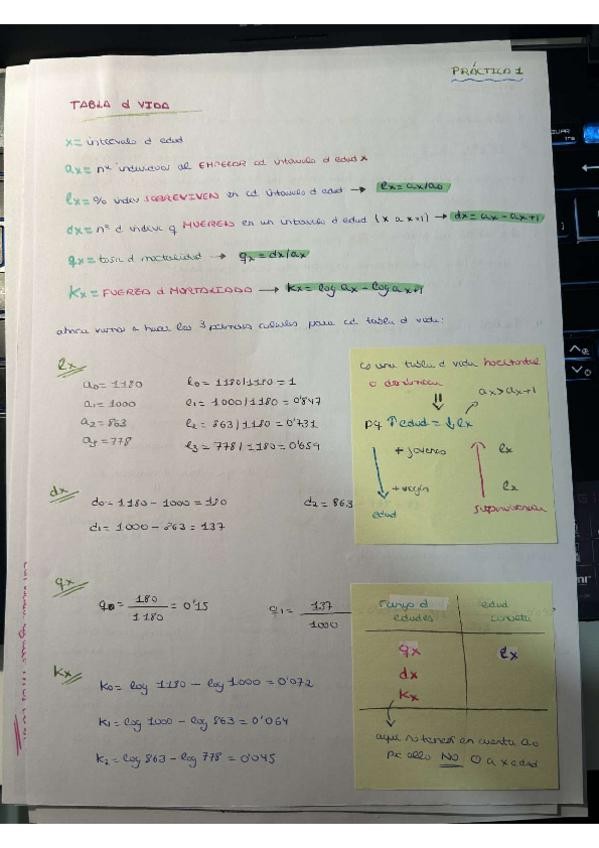 PRÁCTICA 1
TABLA d VIDA
x = intervalo d edad
ax = nº individuos al EMPEZAR cd intervalo d edad x
lx = % indiv SOBREVIVEN en cd intervalo d edad → lx = ax/a0
dx = nº d indiv q MUEREN en un intervalo d edad (x a x+1) → dx = ax - ax+1
qx = tasa d mortalidad → qx = dx/ax
Kx = FUERZA d MORTALIDAD → Kx = log ax - log ax+1
ahora vamos a hacer los 3 primeros cálculos para cd tabla d vida:
lx
a0 = 1180 l0 = 1180/1180 = 1
a1 = 1000 l1 = 1000/1180 = 0'847
a2 = 863 l2 = 863/1180 = 0'731
a3 = 778 l3 = 778/1180 = 0'659
es una tabla d vida horizontal
o dinámica
ax > ax+1
pq ↑edad = ↓lx
+ jóvenes lx
+ viejos lx
edad supervivencia
dx
d0 = 1180 - 1000 = 180 d2 = 863
d1 = 1000 - 863 = 137
qx
q0 = 180/1180 = 0'15 q1 = 137/1000
rango d edades edad concreta
qx lx
dx
Kx
aquí no tenerí en cuenta a0
pq ello NO 0 a x edad
Kx
K0 = log 1180 - log 1000 = 0'072
K1 = log 1000 - log 863 = 0'064
K2 = log 863 - log 778 = 0'045